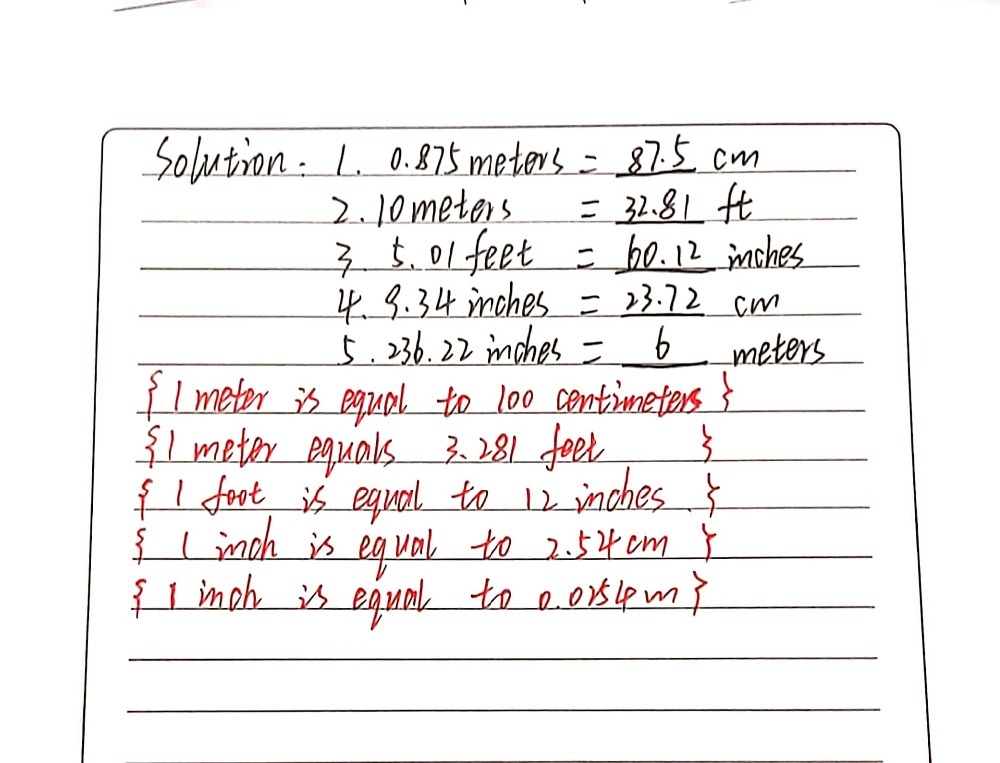 Solution: 1. 0.875 meters = 87.5 cm
2. 10 meters = 32.81 ft
3. 5.01 feet = 60.12 inches
4. 9.34 inches = 23.72 cm
5. 236.22 inches = 6 meters
{1 meter is equal to 100 centimeters}
{1 meter equals 3.281 feet }
{1 foot is equal to 12 inches.}
{1 inch is equal to 2.54cm}
{1 inch is equal to 0.0254m}